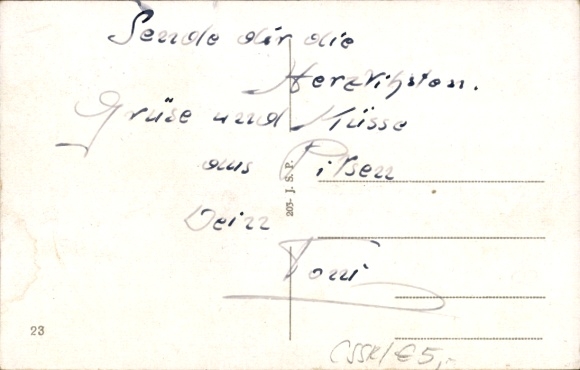 Sende dir die
Herzlihsten.
Grüse und Küsse
aus Pilsen
Dein
Toni
203- J. S. P.
23
ČSSR/€5,-